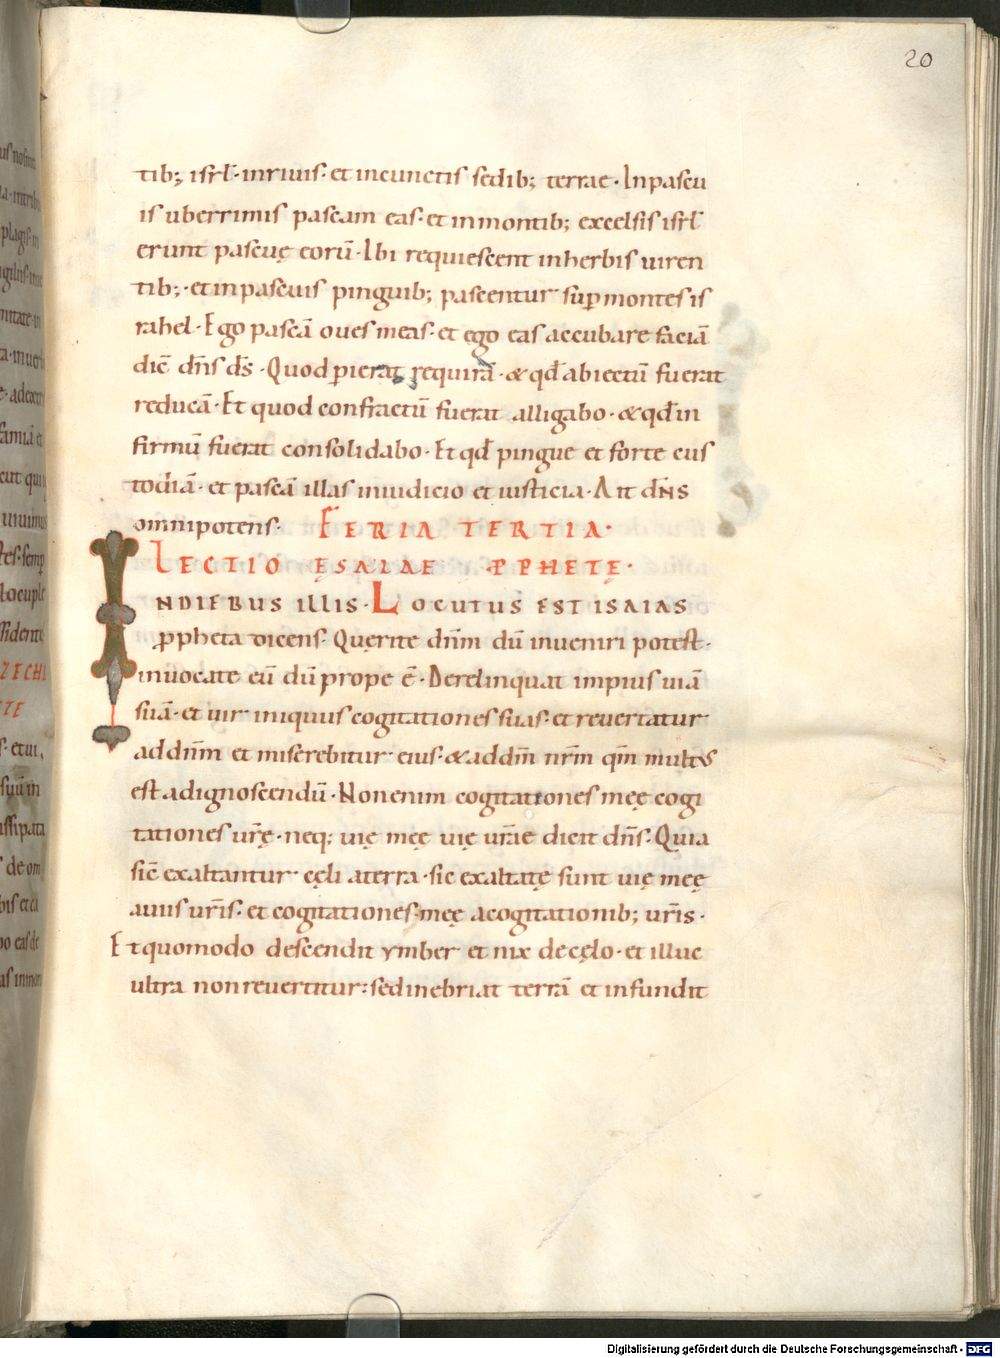 20
tib; isrł· inriuis· et incunctis sedib; terrae· Inpascu
is uberrimis pascam eas· et inmontib; excelsis isrł
erunt pascuę eorū· Ibi requiescent inherbis uiren
tib;· et inpascuis pinguib; pascentur sup montes is
rahel· Ego pascā oues meas· et ego eas accubare faciā
dic̄ dn̄s ds̄· Quod pierat requirā· & qd̄ abiectū fuerat
reducā· Et quod confractū fuerat alligabo· & qd̄ in
firmū fuerat consolidabo· Et qd̄ pingue et forte cus
todiā· et pascā illas iniudicio et iusticia· Ait dn̄s
omnipotens· FERIA TERTIA·
LECTIO ĘSAIAE PPHETĘ·
INDIEBUS ILLIS· LOCUTUS EST ISAIAS
ppheta dicens· Querite dn̄m dū inueniri potest·
inuocate eū dū prope ē· Derelinquat impius uiā
suā· et uir iniquus cogitationes suas· et reuertatur
ad dn̄m et miserebitur eius· & ad dm̄ nr̄m qm̄ multus
est ad ignoscendū· Non enim cogitationes meę cogi
tationes ur̄ę· neq; uię meę uię ur̄ae dicit dn̄s· Quia
sic̄ exaltantur cęli aterra· sic exaltatę sunt uię meę
auiis ur̄is· et cogitationes meę acogitationib; ur̄is·
Et quomodo descendit ymber et nix de cęlo· et illuc
ultra non reuertitur: sed inebriat terrā et infundit
Digitalisierung gefördert durch die Deutsche Forschungsgemeinschaft - DFG